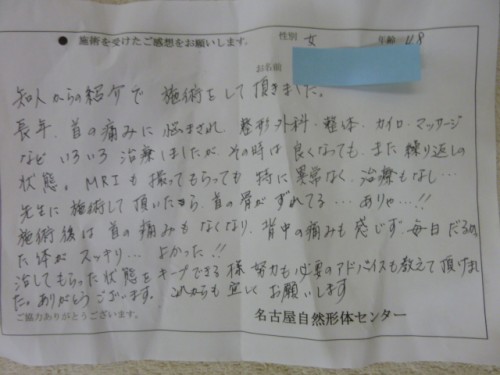 ● 施術を受けたご感想をお願いします。 性別 女 年齢 48
お名前
知人からの紹介で 施術をして頂きました。
長年、首の痛みに悩まされ、整形外科・整体・カイロ・マッサージ
など いろいろ 治療しましたが その時は 良くなっても、また繰り返しの
状態。MRIも撮ってもらっても 特に異常なく、治療もなし…
先生に施術して頂いたから、首の骨がずれてる…ありゃ…!!
施術後は 首の痛みもなくなり、背中の痛みも感じず、毎日だるかっ
た体が スッキリ… よかった!!
治してもらった状態をキープできる様 努力も必要のアドバイスも教えて頂けまし
た。ありがとうございます。これからも宜しくお願いします
ご協力ありがとうございます。 名古屋自然形体センター